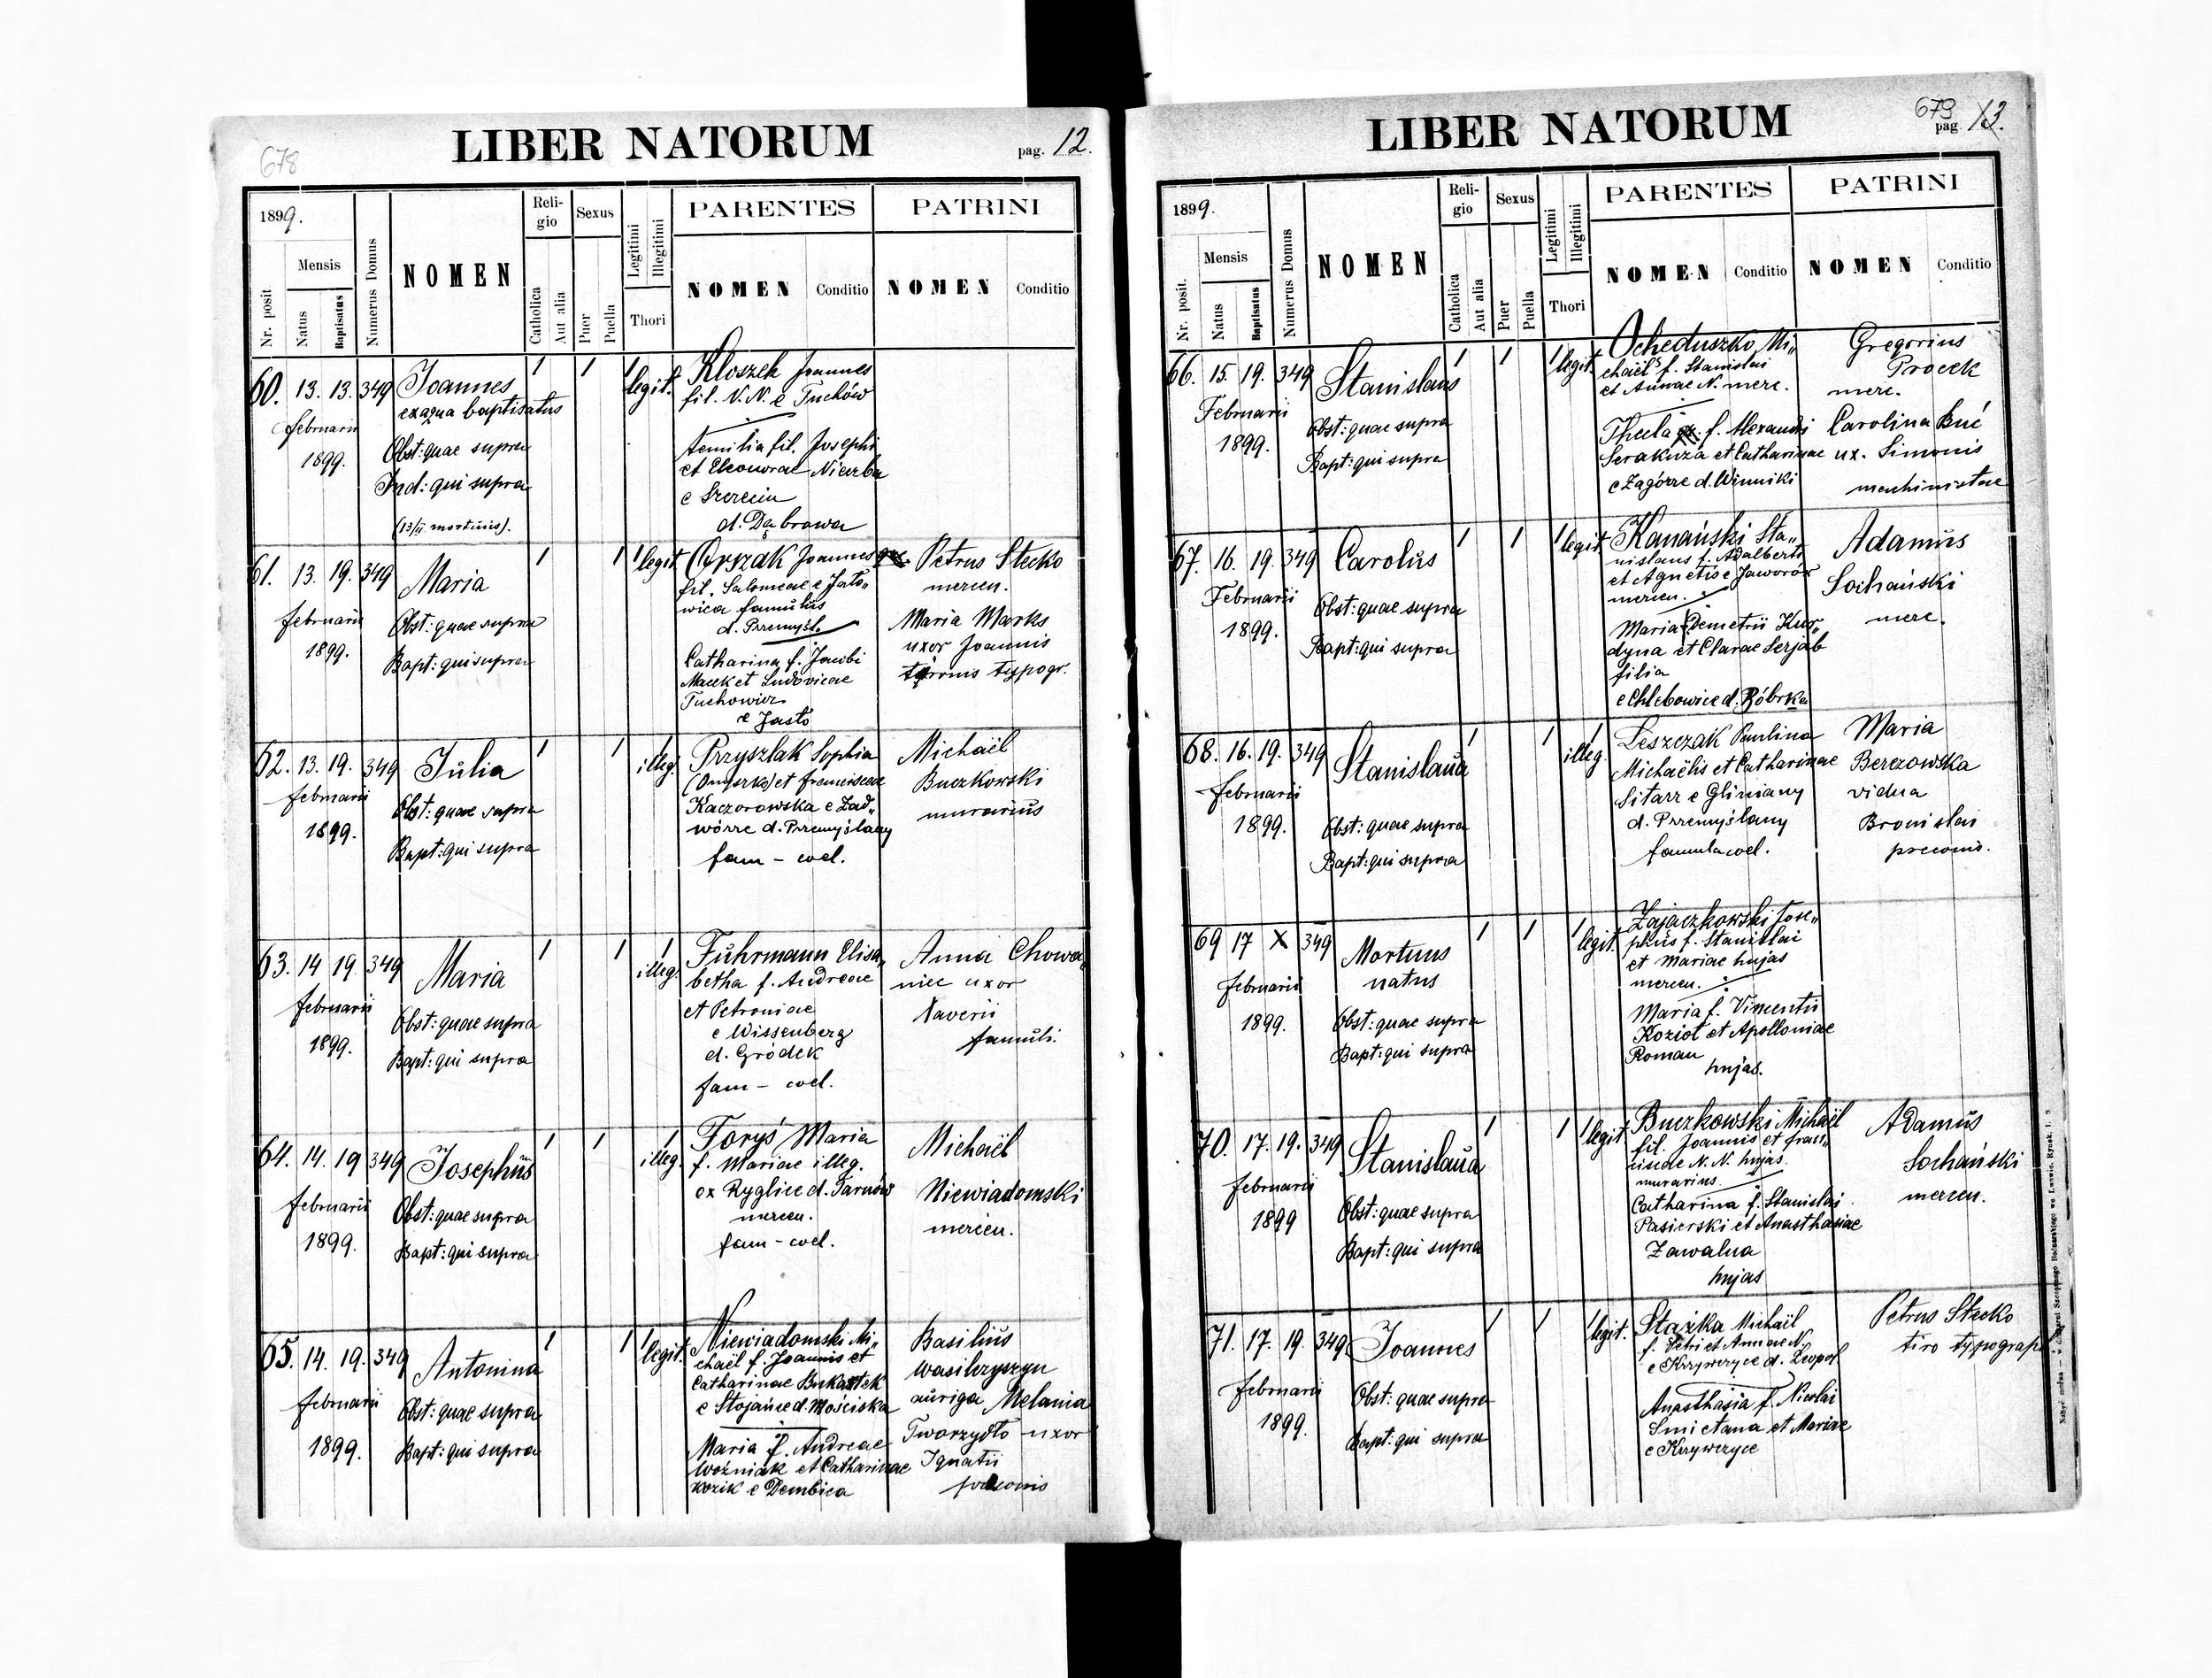 678
LIBER NATORUM
pag. 12.
1899.
Nr. posit
Mensis
Natus
Baptisatus
Numerus Domus
NOMEN
Reli-
gio
Catholica
Aut alia
Sexus
Puer
Puella
Legitimi
Illegitimi
Thori
PARENTES
NOMEN
Conditio
PATRINI
NOMEN
Conditio
60. 13. 13. 349
februarii
1899.
Joannes
ex aqua baptisatus
Obst: quae supra
Ind: qui supra
(13/II mortuus).
1 1 1
legit.
Kloszek Joannes
fil. N. N. e Tuchów
Aemilia fil. Josephi
et Eleonorae
e
d. Dąbrowa
61. 13. 19. 349
februarii
1899.
Maria
Obst: quae supra
Bapt: qui supra
1 1 1
legit.
Orszak Joannes
fil. Salomeae e Jato„
wica famulus
d. Przemyśl.
Catharina f. Jacobi
Macek et Ludovicae
Tuchowicz
e Jasło
Petrus Stecko
mercen.
Maria Marks
uxor Joannis
tironis typogr.
62. 13. 19. 349
februarii
1899.
Julia
Obst: quae supra
Bapt: qui supra
1 1
illeg.
Przyszlak Sophia
et Franciscae
Kaczorowska e Zad„
wórze d. Przemyślany
fam - coel.
Michaël
Buczkowski
murarius
63. 14 19. 349
februarii
1899.
Maria
Obst: quae supra
Bapt: qui supra
1 1 1
illeg.
Fuhrmann Elisa„
betha f. Andreae
et Petroniae
e Wissenberg
d. Gródek
fam - coel.
Anna Chowa„
niec uxor
Xaverii
famuli.
64. 14. 19 349
februarii
1899.
Josephus
Obst: quae supra
Bapt: qui supra
1 1 1
illeg.
Foryś Maria
f. Mariae illeg.
ex Ryglice d. Tarnów
mercen.
fam - coel.
Michaël
Niewiadomski
mercen.
65. 14. 19. 349
februarii
1899.
Antonina
Obst: quae supra
Bapt: qui supra
1 1 1
legit.
Niewiadomski Mi„
chaël f. Joannis et
Catharinae
e Stojańce d. Mościska
Maria f. Andreae
Woźniak et Catharinae
Kozik e Dembica
Basilius
Wasilczyszyn
auriga Melania
Tworzydło uxor
Ignatii
679
LIBER NATORUM
pag. 13.
1899.
Nr. posit.
Mensis
Natus
Baptisatus
Numerus Domus
NOMEN
Reli-
gio
Catholica
Aut alia
Sexus
Puer
Puella
Legitimi
Illegitimi
Thori
PARENTES
NOMEN
Conditio
PATRINI
NOMEN
Conditio
66. 15. 19. 349
Februarii
1899.
Stanislaus
Obst: quae supra
Bapt: qui supra
1 1 1
legit.
Ocheduszko Mi„
chaël f. Stanislai
et Annae N. merc.
Thecla f. Alexandri
Serakuza et Catharinae
e Zagórze d. Winniki
Gregorius
Procek
merc.
Carolina Buć
ux. Simonis
machinistae
67. 16. 19. 349
Februarii
1899.
Carolus
Obst: quae supra
Bapt: qui supra
1 1 1
legit.
Kanański Sta„
nislaus f. Adalberti
et Agnetis e Jaworów
mercen.
Maria Demetrii Kur„
dyna et Clarae Serjab
filia
e Chlebowice d. Bóbrka
Adamus
Sochański
merc.
68. 16. 19. 349
februarii
1899.
Stanislaua
Obst: quae supra
Bapt: qui supra
1 1 1
illeg.
Leszczak Paulina
Michaëlis et Catharinae
Sitarz e Gliniany
d. Przemyślany
famula coel.
Maria
Berezowska
vidua
Bronislai
preconis.
69 17 X 349
februarii
1899.
Mortuus
natus
Obst: quae supra
Bapt: qui supra
1 1 1
legit.
Zajaczkowski Jose„
phus f. Stanislai
et Mariae hujas
mercen.
Maria f. Vincentii
Kozioł et Apolloniae
Roman
hujas.
70. 17. 19. 349
februarii
1899
Stanislaua
Obst: quae supra
Bapt: qui supra
1 1 1
legit.
Buczkowski Michaël
fil. Joannis et Fran„
ciscae N. N. hujas.
murarius
Catharina f. Stanislai
Pasierski et Anasthasiae
Zawalna
hujas
Adamus
Sochański
mercen.
71. 17. 19. 349
februarii
1899.
Joannes
Obst: quae supra
Bapt: qui supra
1 1 1
legit.
Stażka Michaël
f. Petri et Annae N.
e Krzywczyce d. Leopol
Anasthasia f. Nicolai
Smietana et Mariae
e Krzywczyce
Petrus Stecko
tiro typograph